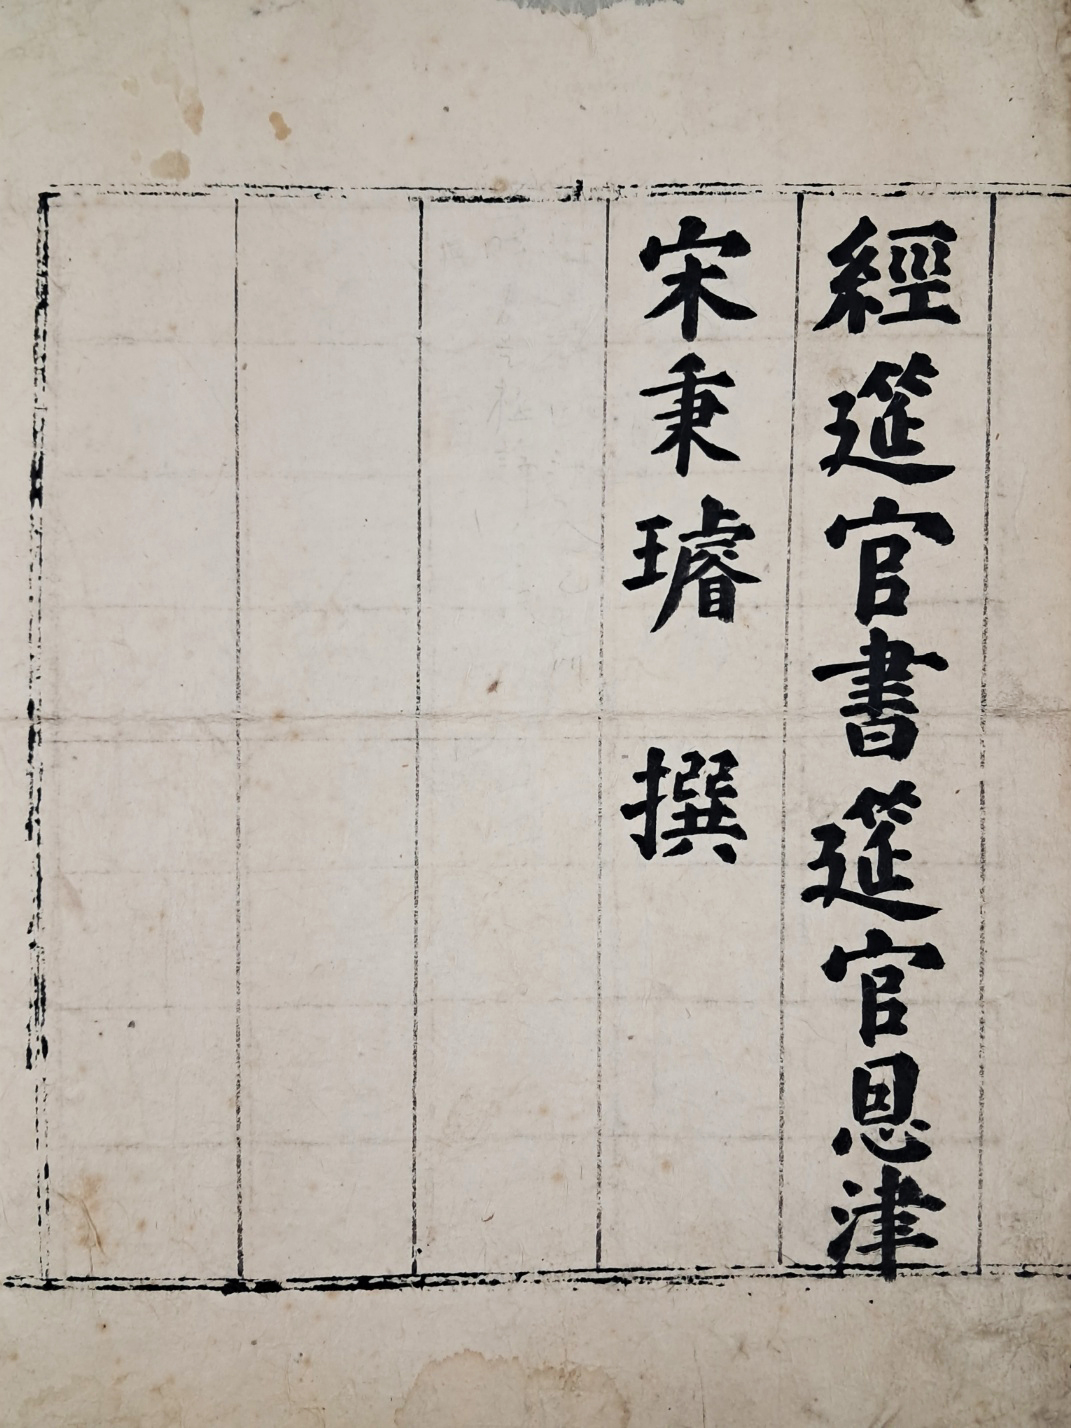 經筵官書筵官恩津
宋秉璿 撰